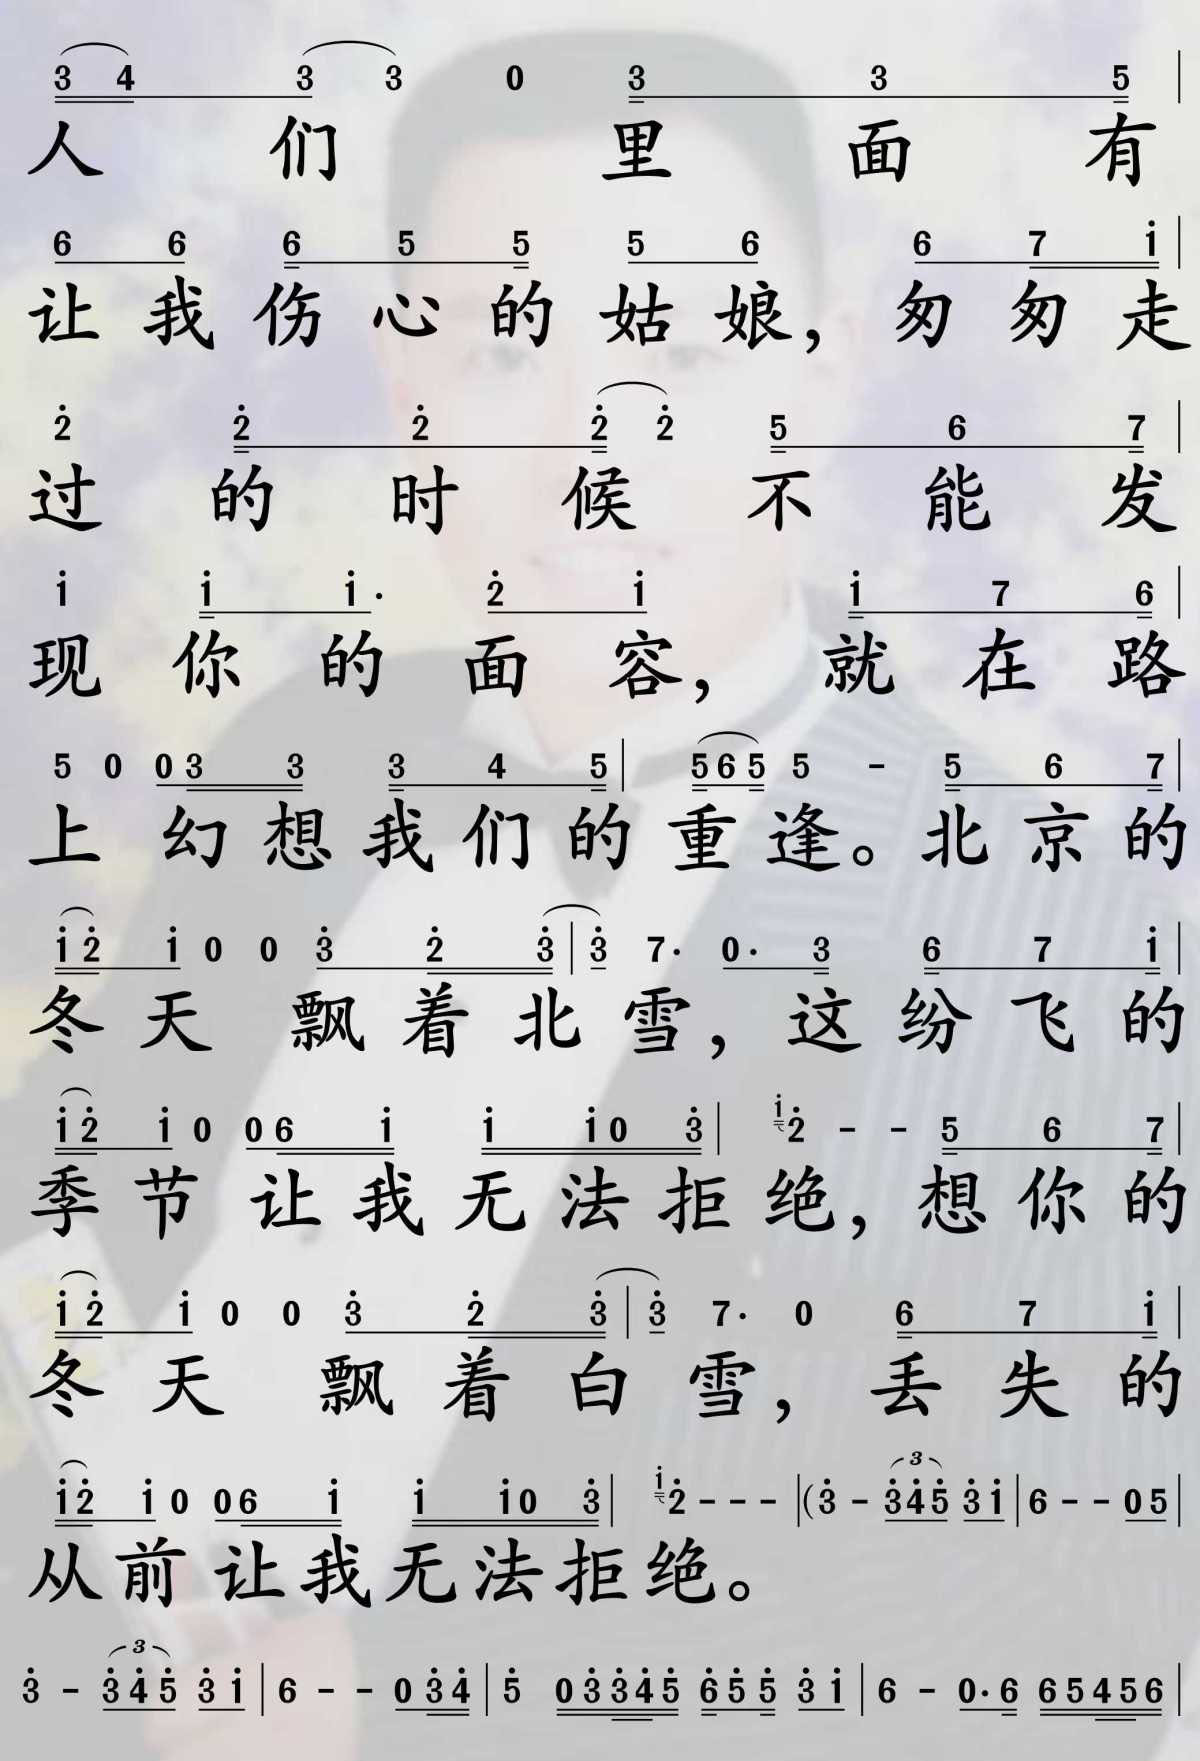 3 4 3 3 0 3 3 5 |
人们里面有
6 6 6 5 5 5 6 6 7 i |
让我伤心的姑娘，匆匆走
2̇ 2̇ 2̇ 2̇ 2̇ 5 6 7 |
过的时候不能发
i i i· 2̇ i i 7 6 |
现你的面容，就在路
5 0 0 3 3 3 4 5 | 5 6 5 5 - 5 6 7 |
上幻想我们的重逢。北京的
i 2̇ i 0 0 3̇ 2̇ 3̇ | 3̇ 7· 0· 3 6 7 i |
冬天飘着北雪，这纷飞的
i 2̇ i 0 0 6 i i i 0 3̇ | i 2̇ - - 5 6 7 |
季节让我无法拒绝，想你的
i 2̇ i 0 0 3̇ 2̇ 3̇ | 3̇ 7· 0 6 7 i |
冬天飘着白雪，丢失的
i 2̇ i 0 0 6 i i i 0 3̇ | i 2̇ - - - | (3̇ - 3 3̇ 4̇ 5̇ 3̇ i | 6 - - 0 5 |
从前让我无法拒绝。
3̇ - 3 3̇ 4̇ 5̇ 3̇ i | 6 - - 0 3̇ 4̇ | 5̇ 0 3̇ 3̇ 4̇ 5̇ 6̇ 5̇ 5̇ 3̇ i | 6 - 0· 6 6 5 4 5 6 |